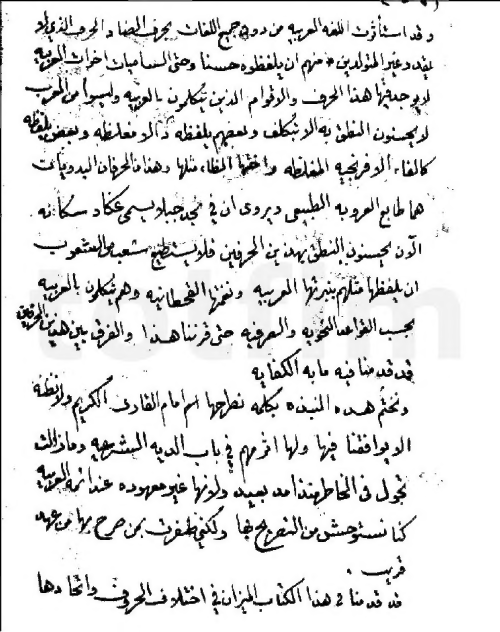 وقد استأثرت اللغه العربيه من دون جميع اللغات بحرف الضاد الحرف الذي لا
وغير المتولدين منهم ان يلفظوه حسنا وحتى الساميات اخوات العربيه
لا يوجد فيها هذا الحرف والاقوام الذين يتكلمون بالعربيه وليسوا من العرب
لا يحسنون النطق به الا بتكلف وبعضهم يلفظه دالا مغلظه وبعض يلفظه
كالفاء الافرنجيه المغلظه واختها الظاء مثلها وهذان الحرفان البدويان
هما طابع العروبه الطبيعي ويروى ان في نجد جبلا يسمى عكاد سكانه
الآن يحسنون النطق بهذين الحرفين فلا يستطيع شعب من الشعوب
ان يلفظها مثلهم بنبرتها العربيه ونغمتها القحطانيه وهم يتكلمون بالعربيه
بحسب القواعد النحويه والصرفيه حتى قرننا هذا والفرق بين هذين الحرفين
قد قدمنا فيه ما به الكفايه
ونختم هذه النبذه بكلمه نطرحها امام القارئ الكريم ولا نظنه
الا يوافقنا فيها ولها اثر مهم في باب الديه الشرعيه وما زالت
تجول في الخاطر منذ امد بعيد ولانها غير معهوده عند ائمة العربيه
كنا نستوحش من التصريح بها ولكني ظفرت بمن صرح بها من عهد
قريب .
قد قدمنا في هذا الكتاب الميزان في اختلاف الحروف واتحادها
totfim